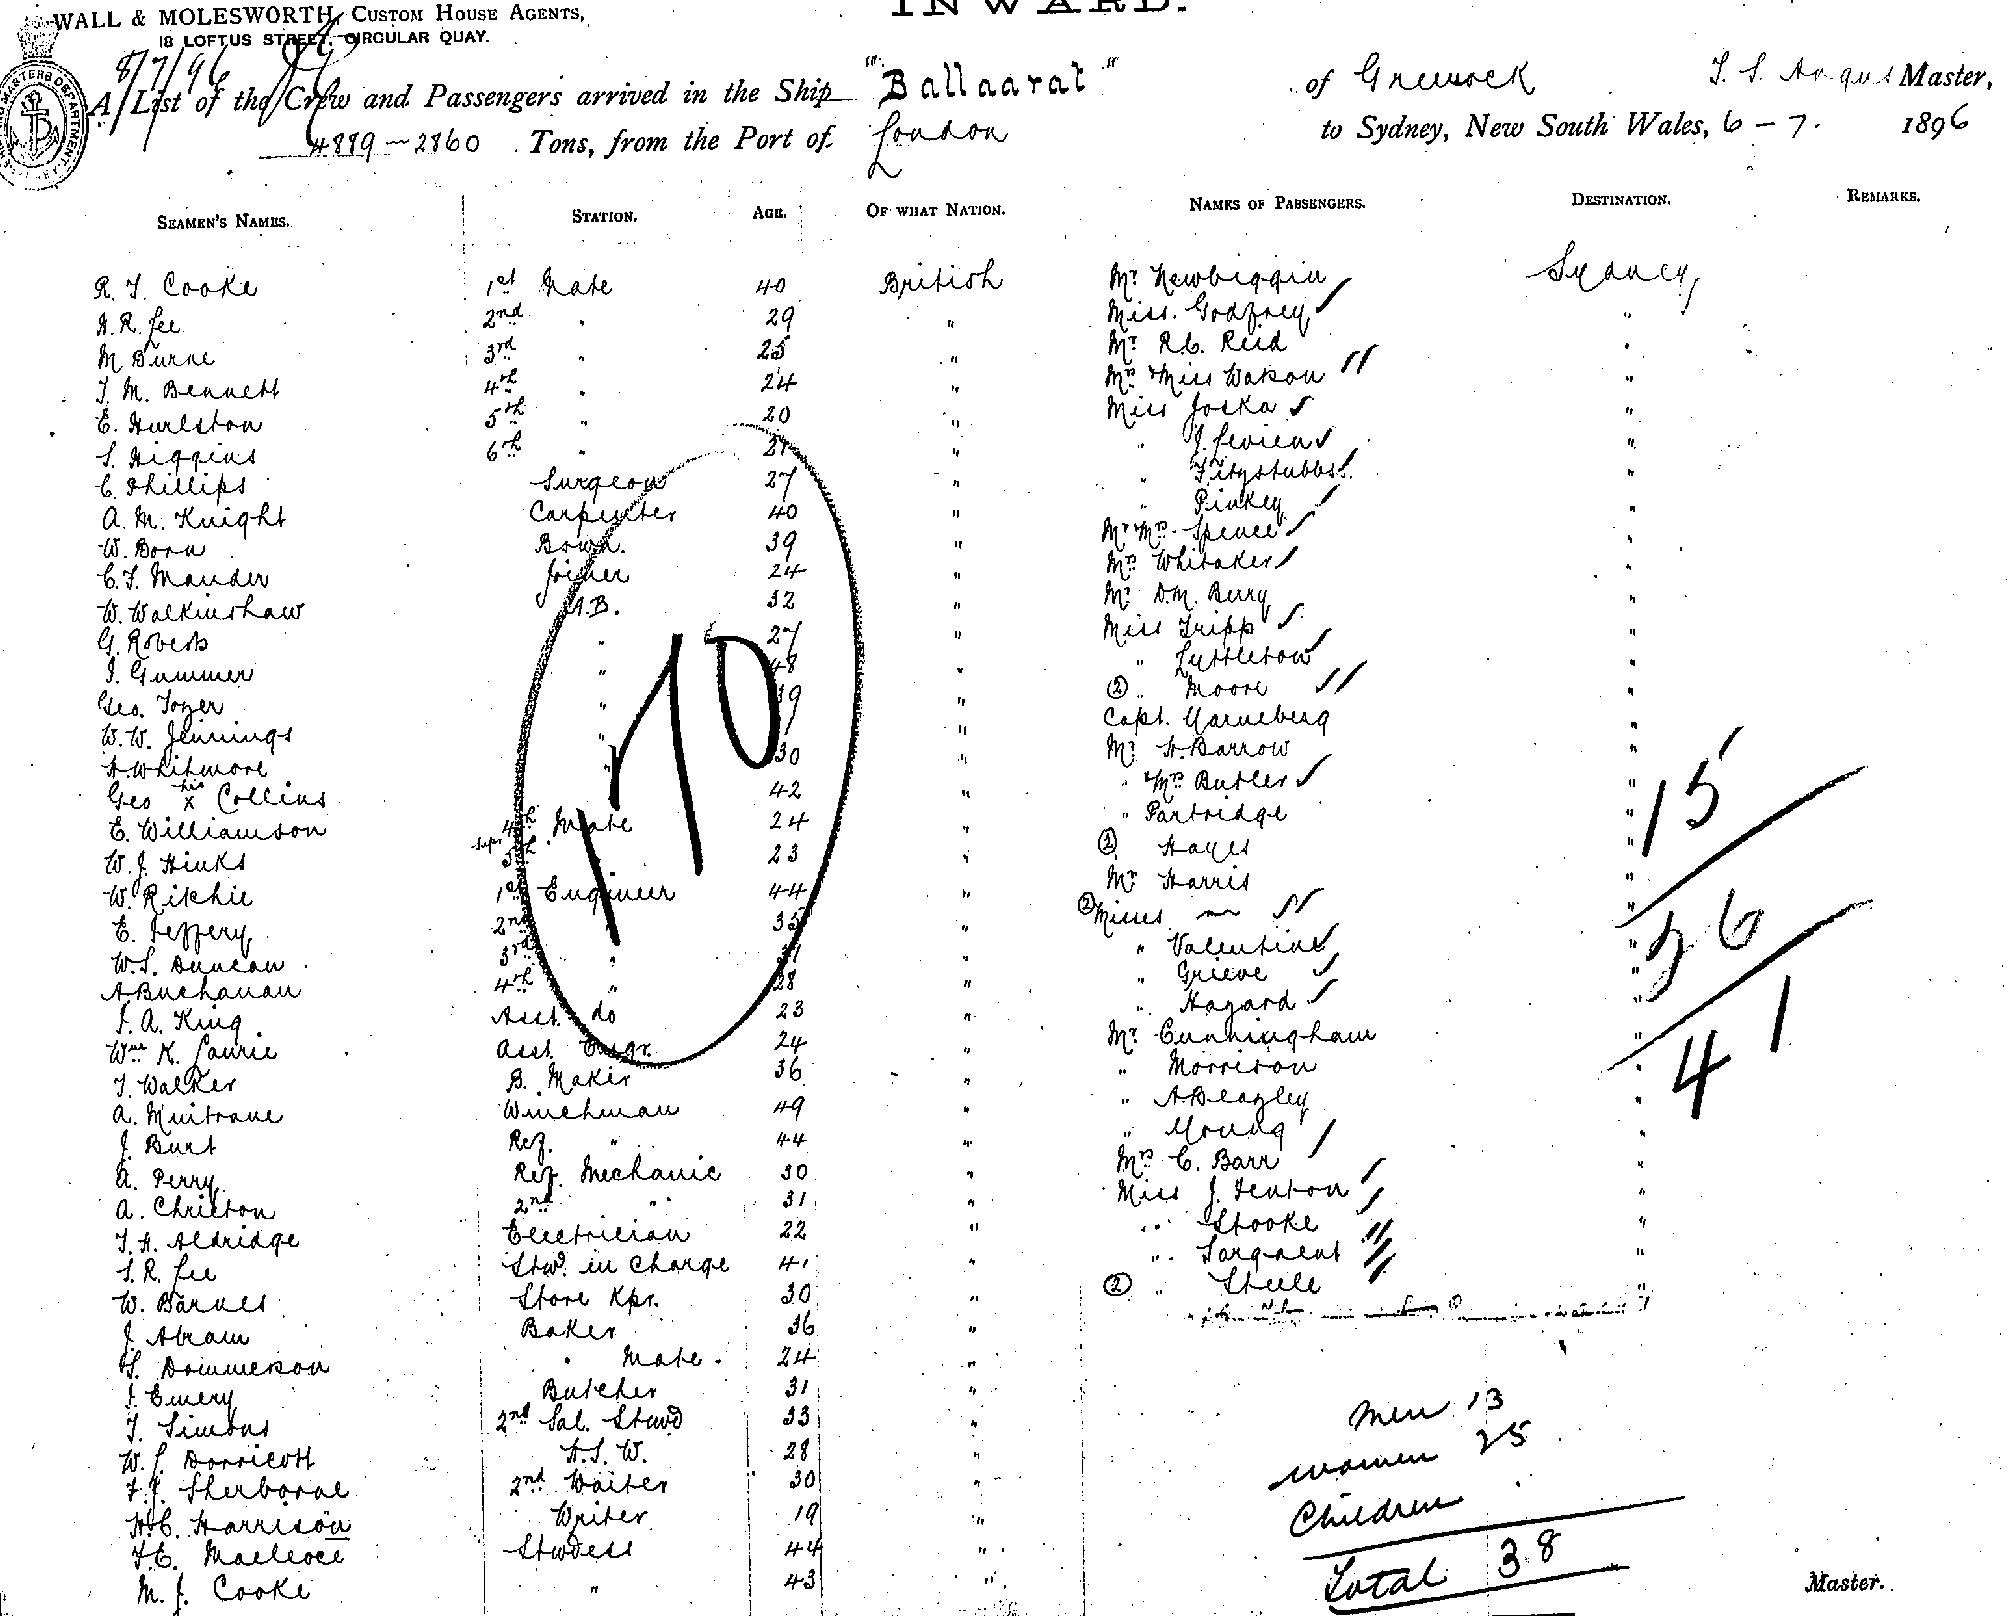 INWARD.
WALL & MOLESWORTH, CUSTOM HOUSE AGENTS,
18 LOFTUS STREET, CIRCULAR QUAY.
8/7/96
A List of the Crew and Passengers arrived in the Ship "Ballaarat" of Greenock T. S. Angus Master,
2860 Tons, from the Port of London to Sydney, New South Wales, 6 - 7. 1896
SEAMEN'S NAMES. STATION. AGE. OF WHAT NATION. NAMES OF PASSENGERS. DESTINATION. REMARKS.
R. T. Cooke 1st Mate 40 British Mr Newbiggin Sydney
H. R. Lee 2nd " 29 " Miss. Godfrey "
M Burne 3rd " 25 " Mr R.C. Reid "
T. M. Bennett 4th " 24 " Mrs & Miss Watson "
E. Hurlston 5th " 20 " Miss Joska "
S. Higgins 6th " " " J. Levien "
C. Phillips Surgeon 27 " " "
A. M. Knight Carpenter 40 " " Pinkey "
W. Born Bswn. 39 " Mr & Mrs Spence "
C. T. Mander Joiner 24 " Mrs Whitaker "
W. Walkinshaw A.B. 32 " Mr D.M. Berry "
G. Roberts " 27 " Miss Tripp "
J. Gummer " 48 " " Lyttletow "
Geo. Tozer " 39 " ② " Moore "
W. W. Jennings " " Capt. "
A. Whitmore " 30 " Mr H. Barrow "
Geo his x Collins 42 " " & Mrs Butler "
E. Williamson 4th Mate 24 " " Partridge "
W. J. Hinks Supr 5th " 23 " ② Hayes "
W. Ritchie 1st Engineer 44 " Mr Harris "
E. Jeffery 2nd " 35 " ② Misses "
W. S. Duncan 3rd " " " Valentine "
A Buchanan 4th " 28 " " Grieve "
J. A. King Asst. do 23 " " Hazard "
Wm K. Laurie Asst. Engr. 24 " Mr Cunningham "
T. Walker B. Maker 36 " " Morrison "
A. Winchman 49 " " A Beazley "
J. Burt Ref. " 44 " " Young "
A. Perry Ref. Mechanic 30 " Mrs C. Barr "
A. Christon 2nd " 31 " Miss J. Fenton "
T. H. Aldridge Electrician 22 " " Stooke "
S. R. Lee Stwd. in Charge 41 " " Sargaent "
W. Barnes Store Kpr. 30 " ② " Steele "
J. Abram Baker 36 "
S. Dommerson " Mate. 24 "
J. Emery Butcher 31 "
T. Simons 2nd Sal. Stwd 33 "
W. S. Dorricott H.S.W. 28 "
F. J. Sherborne 2nd Waiter 30 "
H. C. Harrison Writer 19 "
F. E. Stwdess 44 "
M. J. Cooke " 43 "
170
15
26
41
Men 13
Women 25
Children
Total 38
Master.